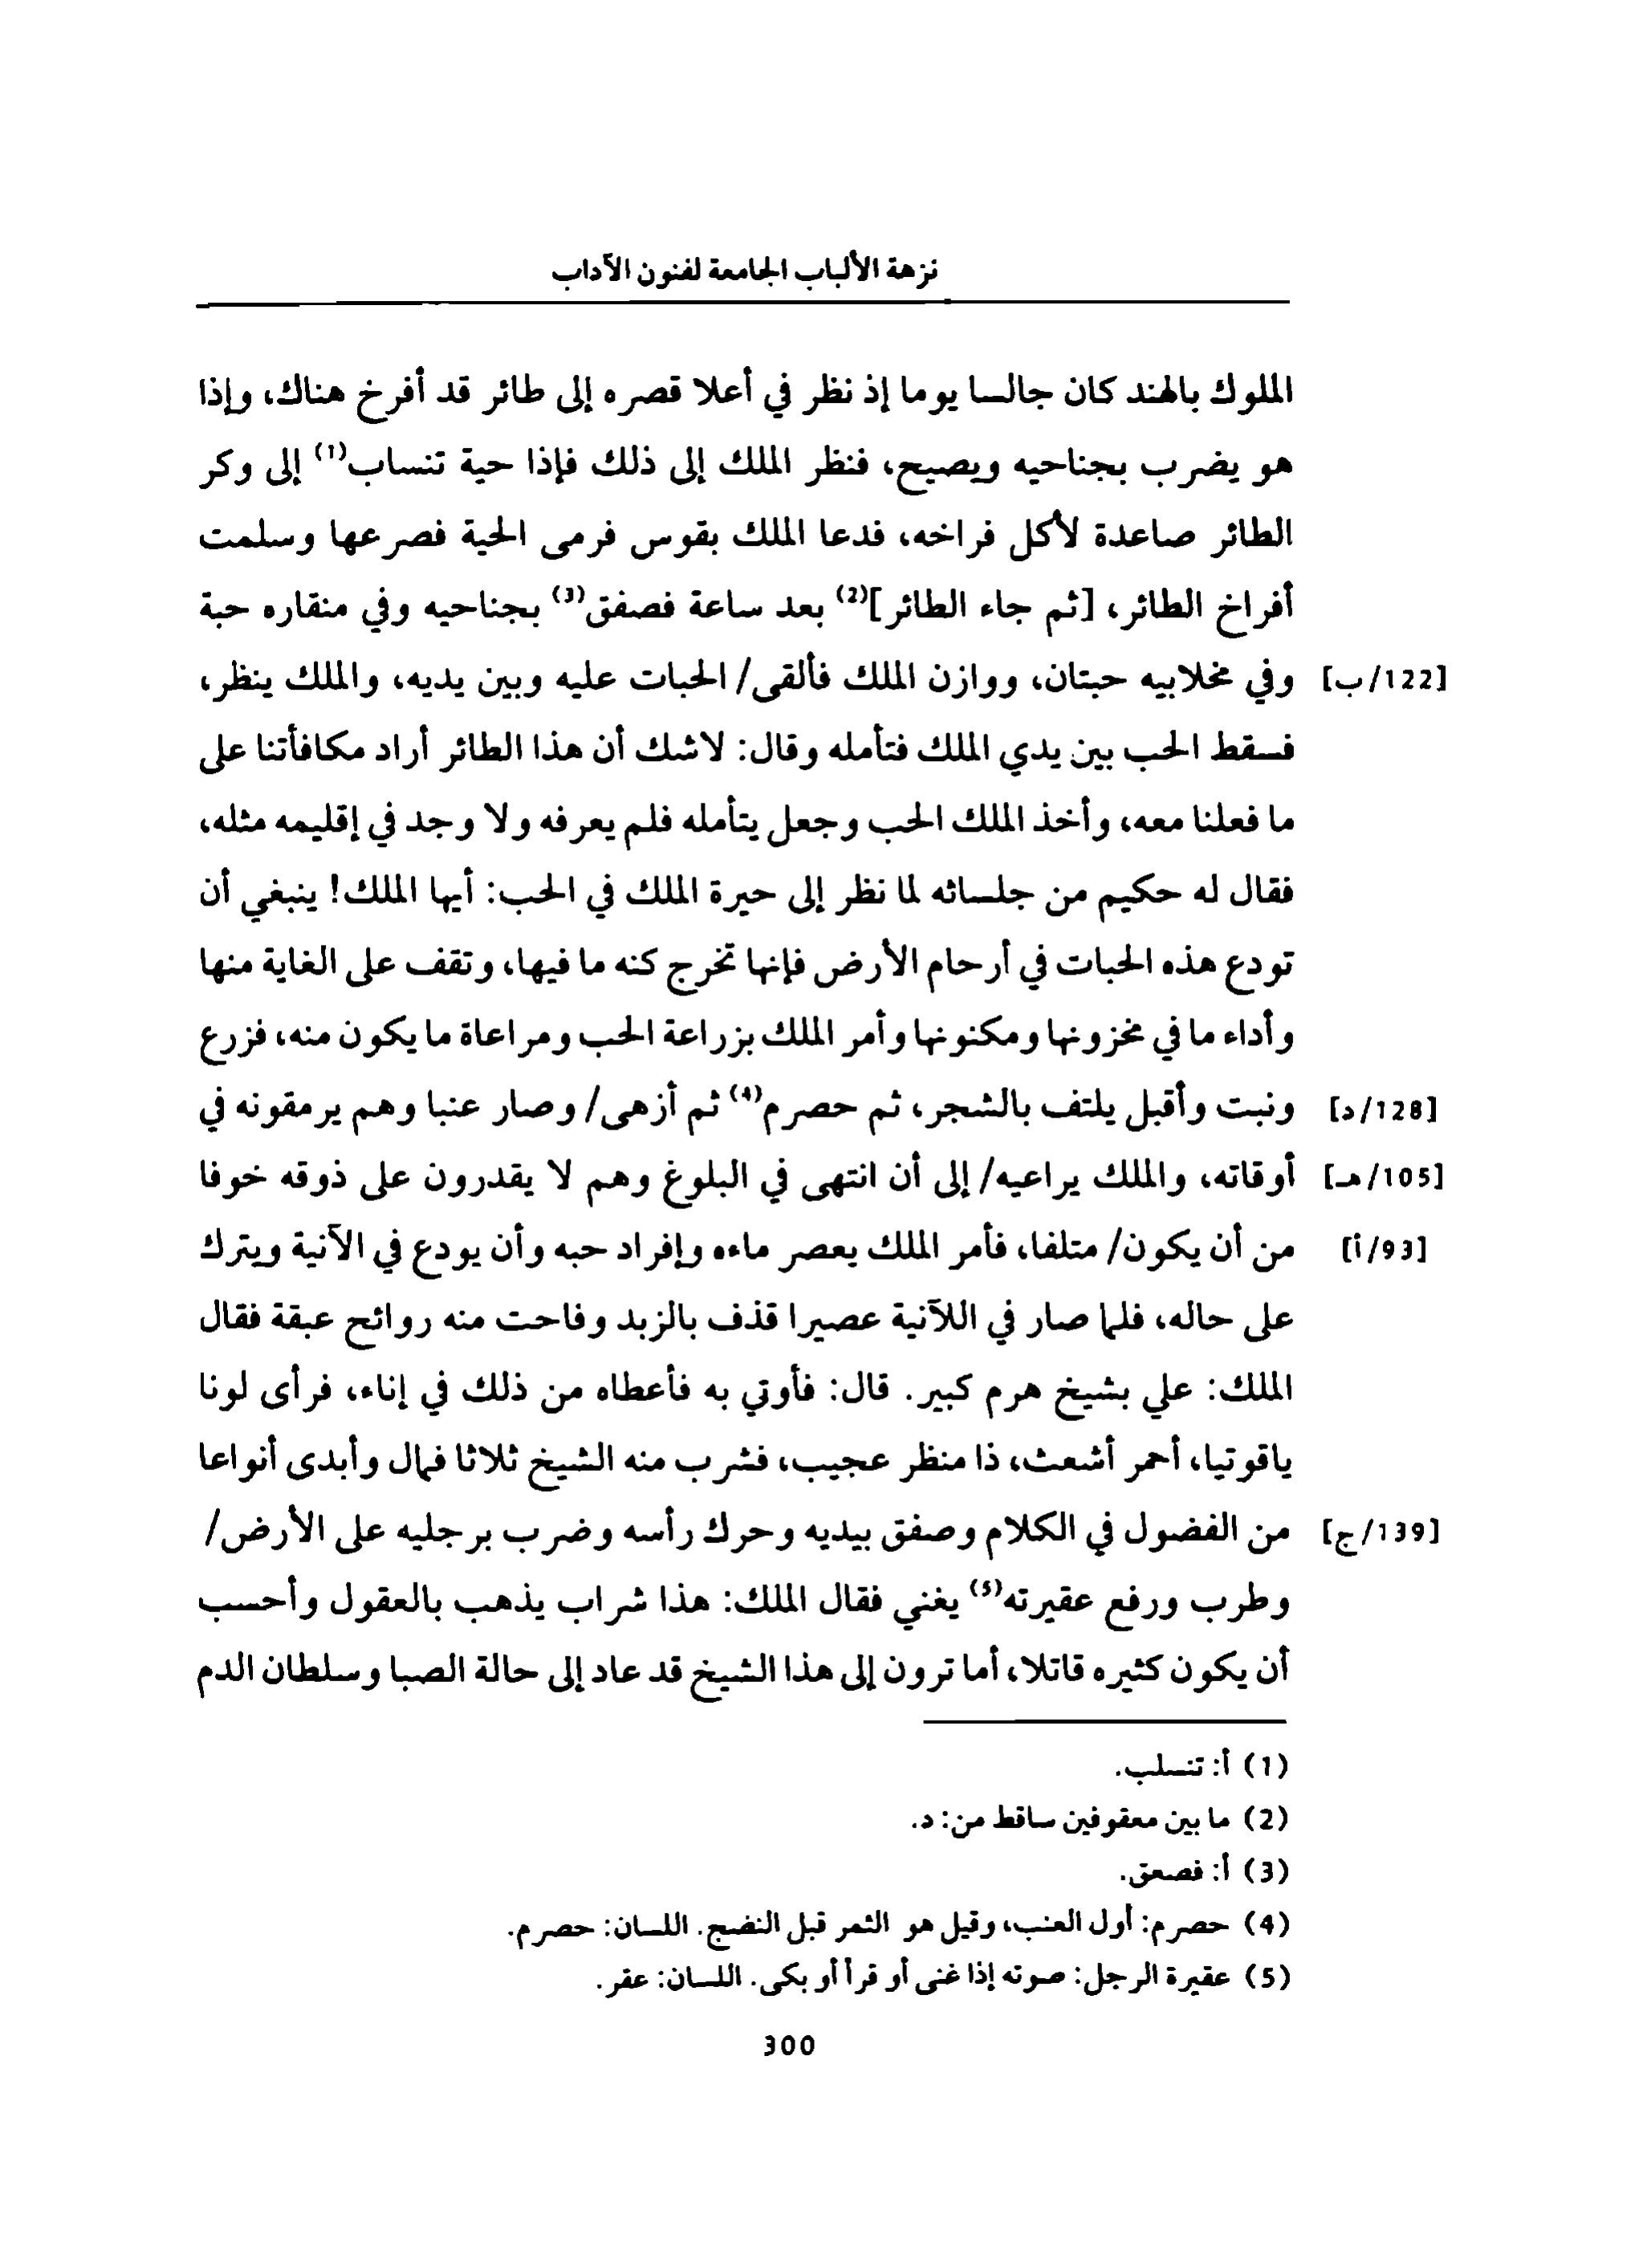 نزهة الألباب الجامعة لفنون الآداب
الملوك بالهند كان جالسا يوما إذ نظر في أعلا قصره إلى طائر قد أفرخ هناك، وإذا
هو يضرب بجناحيه ويصيح، فنظر الملك إلى ذلك فإذا حية تنساب(1) إلى وكر
الطائر صاعدة لأكل فراخه، فدعا الملك بقوس فرمى الحية فصرعها وسلمت
أفراخ الطائر، [ثم جاء الطائر](2) بعد ساعة فصفق(3) بجناحيه وفي منقاره حبة
[122/ب] وفي مخلابيه حبتان، ووازن الملك فألقى/ الحبات عليه وبين يديه، والملك ينظر،
فسقط الحب بين يدي الملك فتأمله وقال: لاشك أن هذا الطائر أراد مكافأتنا على
ما فعلنا معه، وأخذ الملك الحب وجعل يتأمله فلم يعرفه ولا وجد في إقليمه مثله،
فقال له حكيم من جلسائه لما نظر إلى حيرة الملك في الحب: أيها الملك! ينبغي أن
تودع هذه الحبات في أرحام الأرض فإنها تخرج كنه ما فيها، وتقف على الغاية منها
وأداء ما في مخزونها ومكنونها وأمر الملك بزراعة الحب ومراعاة ما يكون منه، فزرع
[128/د] ونبت وأقبل يلتف بالشجر، ثم حصرم(4) ثم أزهى/ وصار عنبا وهم يرمقونه في
[105/هـ] أوقاته، والملك يراعيه/ إلى أن انتهى في البلوغ وهم لا يقدرون على ذوقه خوفا
[93/أ] من أن يكون/ متلفا، فأمر الملك يعصر ماءه وإفراد حبه وأن يودع في الآنية ويترك
على حاله، فلما صار في اللآنية عصيرا قذف بالزبد وفاحت منه روائح عبقة فقال
الملك: علي بشيخ هرم كبير. قال: فأوتي به فأعطاه من ذلك في إناء، فرأى لونا
ياقوتيا، أحمر أشعث، ذا منظر عجيب، فشرب منه الشيخ ثلاثا فمال وأبدى أنواعا
[139/ج] من الفضول في الكلام وصفق بيديه وحرك رأسه وضرب برجليه على الأرض/
وطرب ورفع عقيرته(5) يغني فقال الملك: هذا شراب يذهب بالعقول وأحسب
أن يكون كثيره قاتلا، أما ترون إلى هذا الشيخ قد عاد إلى حالة الصبا وسلطان الدم
(1) أ: تنسلب.
(2) ما بين معقوفين ساقط من: د.
(3) أ: فصعق.
(4) حصرم: أول العنب، وقيل هو الثمر قبل النضج. اللسان: حصرم.
(5) عقيرة الرجل: صوته إذا غنى أو قرأ أو بكى. اللسان: عقر.
300